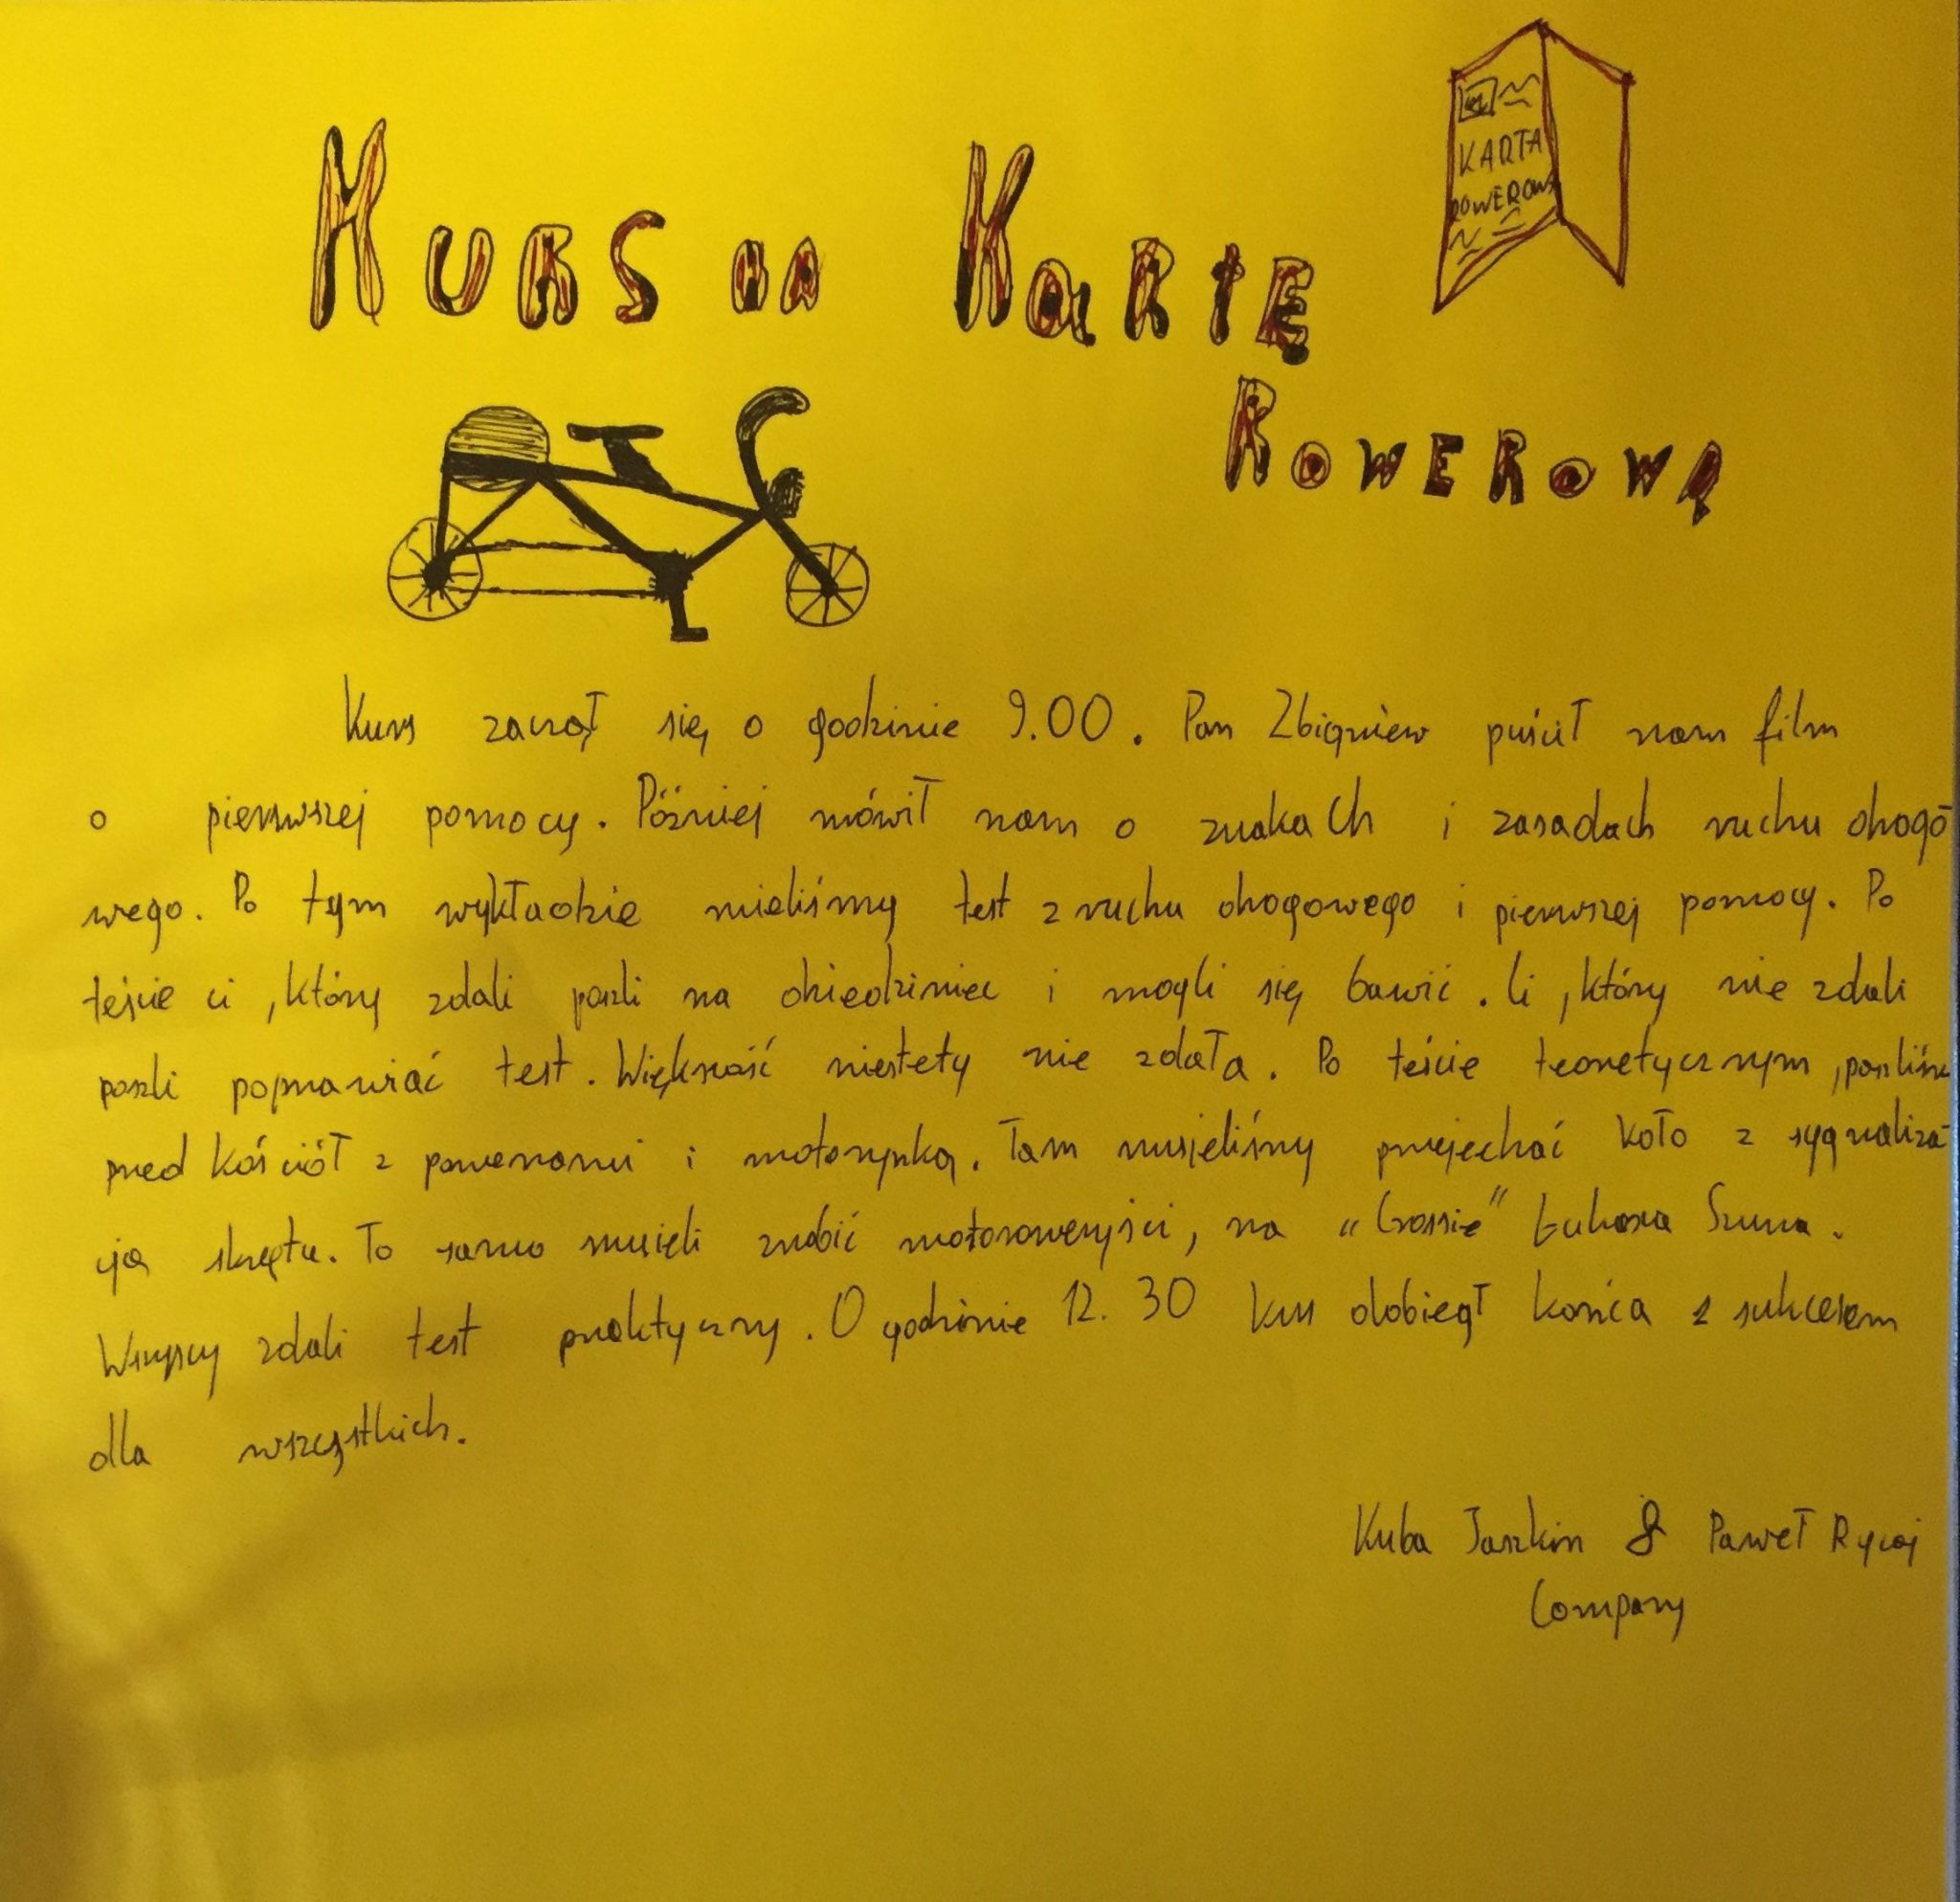 Kurs na Kartę
KARTA
ROWEROWA
Rowerową
Kurs zaczął się o godzinie 9.00. Pan Zbigniew puścił nam film
o pierwszej pomocy. Później mówił nam o znakach i zasadach ruchu drogo-
wego. Po tym wykładzie mieliśmy test z ruchu drogowego i pierwszej pomocy. Po
teście ci, którzy zdali poszli na dziedziniec i mogli się bawić. Ci, którzy nie zdali
poszli poprawiać test. Większość niestety nie zdała. Po teście teoretycznym, poszliśmy
przed kościół z rowerami i motorynką. Tam musieliśmy przejechać koło z sygnaliza-
cją skrętu. To samo musieli zrobić motorowerzyści, na "Crossie" Łukasza
Wszyscy zdali test praktyczny. O godzinie 12.30 kurs dobiegł końca z sukcesem
dla wszystkich.
Kuba Jaszkin & Paweł Rycaj
Company